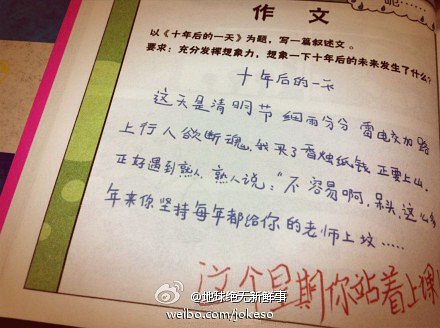 作 文
以《十年后的一天》为题,写一篇叙述文。
要求:充分发挥想象力,想象一下十年后的未来发生了什么?
十年后的一天
这天是清明节 细雨分分 雷电交加 路
上行人欲断魂,我买了香烛纸钱 正要上山,
正好遇到熟人,熟人说:“不容易啊,呆头,这么多
年来你坚持每年都给你的老师上坟……
这个星期你站着上课
@地球绝无新鲜事
weibo.com/jokeso